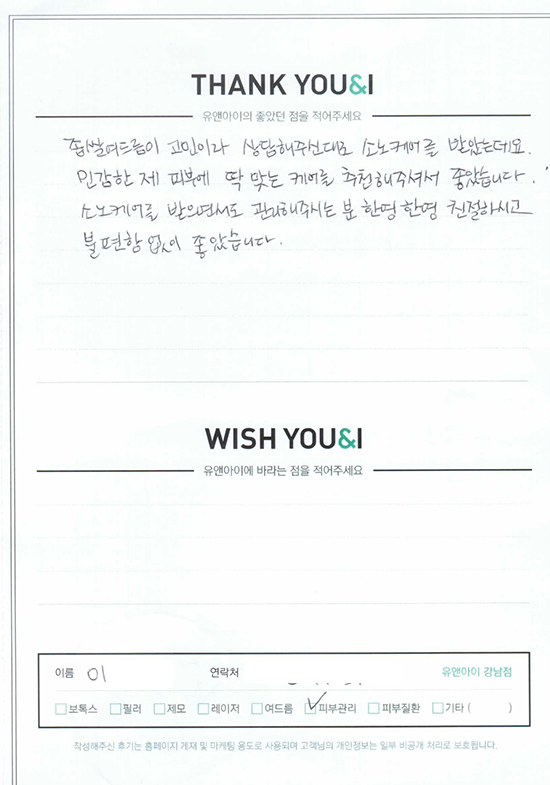 THANK YOU&I
유앤아이의 좋았던 점을 적어주세요
좁쌀여드름이 고민이라 상담해주신대로 소노케어를 받았는데요.
민감한 제 피부에 딱 맞는 케어를 추천해주셔서 좋았습니다.
소노케어를 받으면서도 관리해주시는 분 한명한명 친절하시고
불편함 없이 좋았습니다.
WISH YOU&I
유앤아이에 바라는 점을 적어주세요
이름 이 연락처 유앤아이 강남점
보톡스 필러 제모 레이저 여드름 피부관리 피부질환 기타 ( )
작성해주신 후기는 홈페이지 게재 및 마케팅 용도로 사용되며 고객님의 개인정보는 일부 비공개 처리로 보호됩니다.